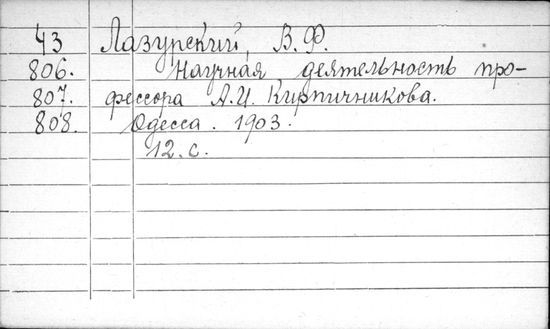 43 Лазурский, В.Ф.
806. Научная деятельность про-
807. фессора А.И. Кирпичникова.
808. Одесса. 1903.
12.с.